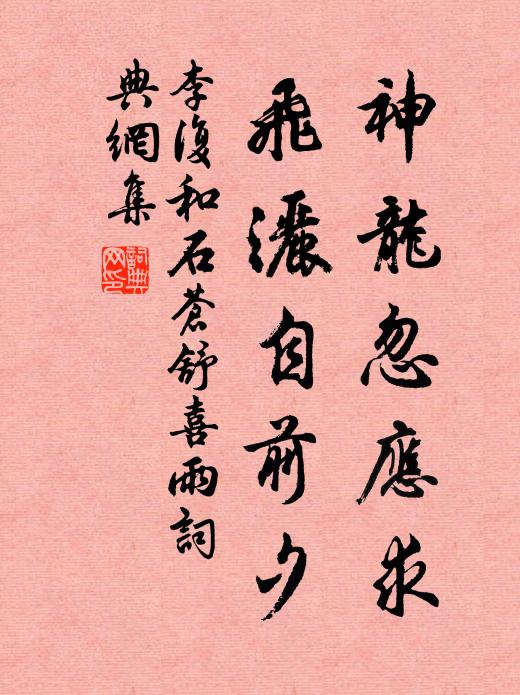 神龍忽應求
飛灑自前夕
李復和石蒼舒喜雨詞
典網集
詞典
网印